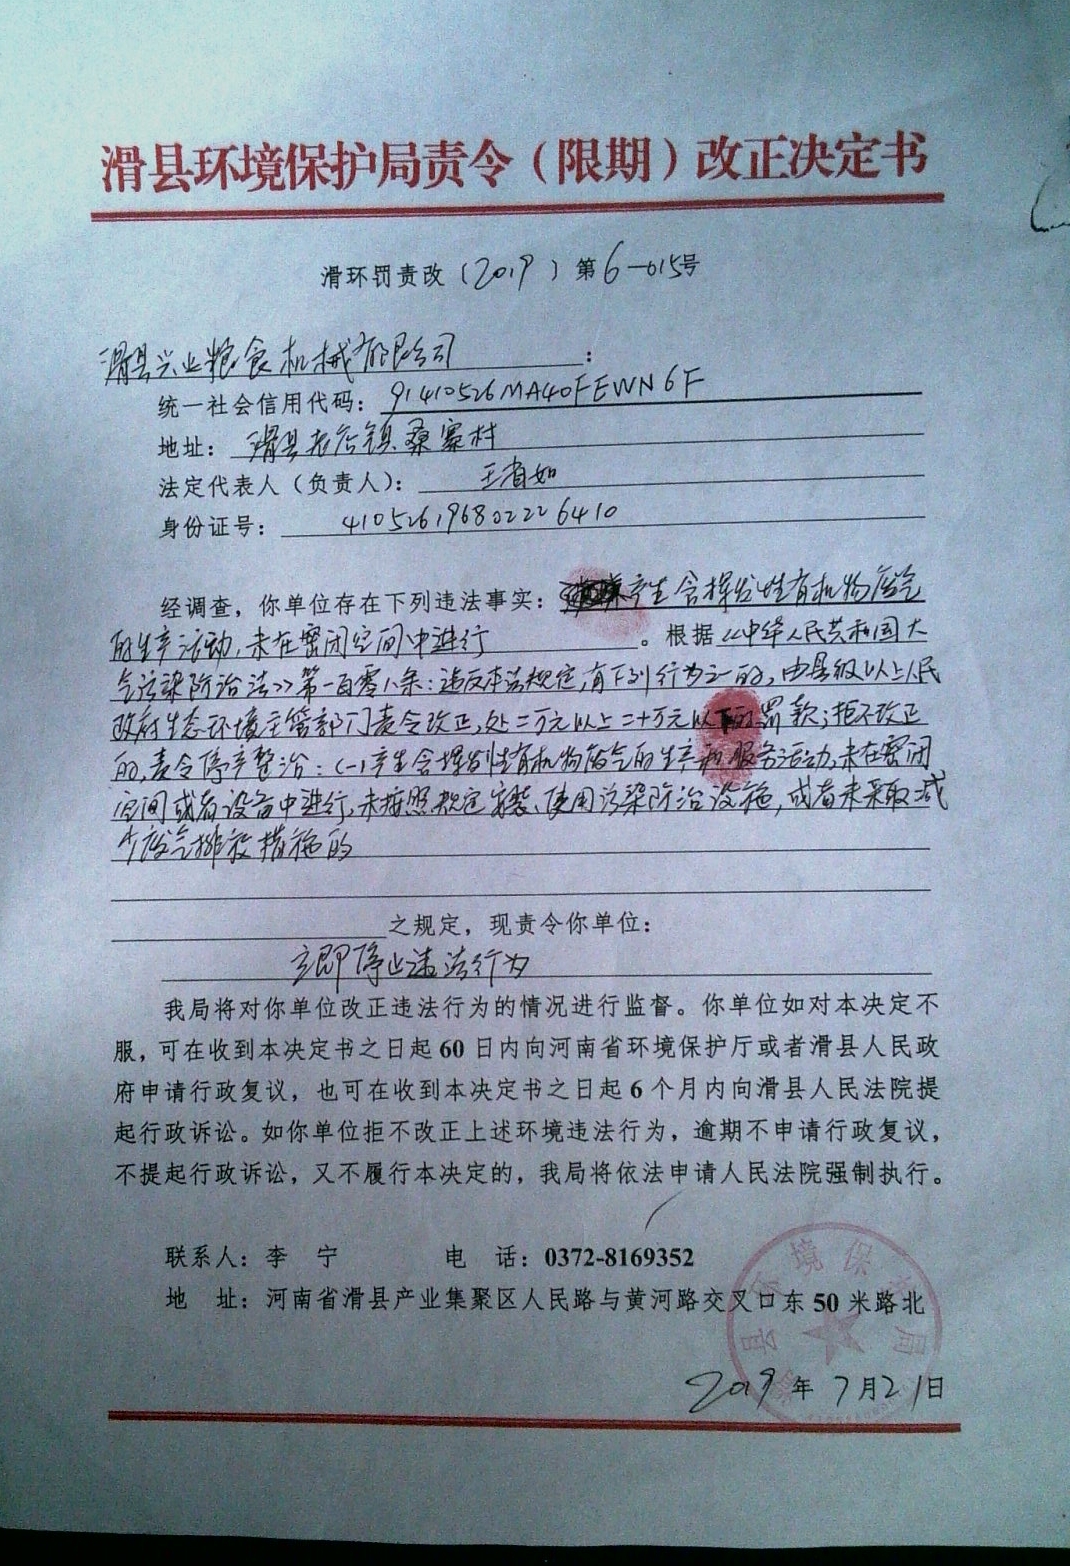 滑县环境保护局责令（限期）改正决定书
滑环罚责改（2019）第6-015号
滑县兴业粮食机械有限公司：
统一社会信用代码：91410526MA40FEWN6F
地址：滑县老店镇桑寨村
法定代表人（负责人）：王省如
身份证号：410526196802226410
经调查，你单位存在下列违法事实：产生含挥发性有机物废气
的生产活动，未在密闭空间中进行。根据《中华人民共和国大
气污染防治法》第一百零八条：违反本法规定，有下列行为之一的，由县级以上人民
政府生态环境主管部门责令改正，处二万元以上二十万元以下的罚款；拒不改正
的，责令停产整治：（一）产生含挥发性有机物废气的生产和服务活动，未在密闭
空间或者设备中进行，未按照规定安装、使用污染防治设施，或者未采取减
少废气排放措施的
之规定，现责令你单位：
立即停止违法行为
我局将对你单位改正违法行为的情况进行监督。你单位如对本决定不
服，可在收到本决定书之日起60日内向河南省环境保护厅或者滑县人民政
府申请行政复议，也可在收到本决定书之日起6个月内向滑县人民法院提
起行政诉讼。如你单位拒不改正上述环境违法行为，逾期不申请行政复议，
不提起行政诉讼，又不履行本决定的，我局将依法申请人民法院强制执行。
联系人：李 宁 电 话：0372-8169352
地 址：河南省滑县产业集聚区人民路与黄河路交叉口东50米路北
滑县环境保护局
2019年7月21日